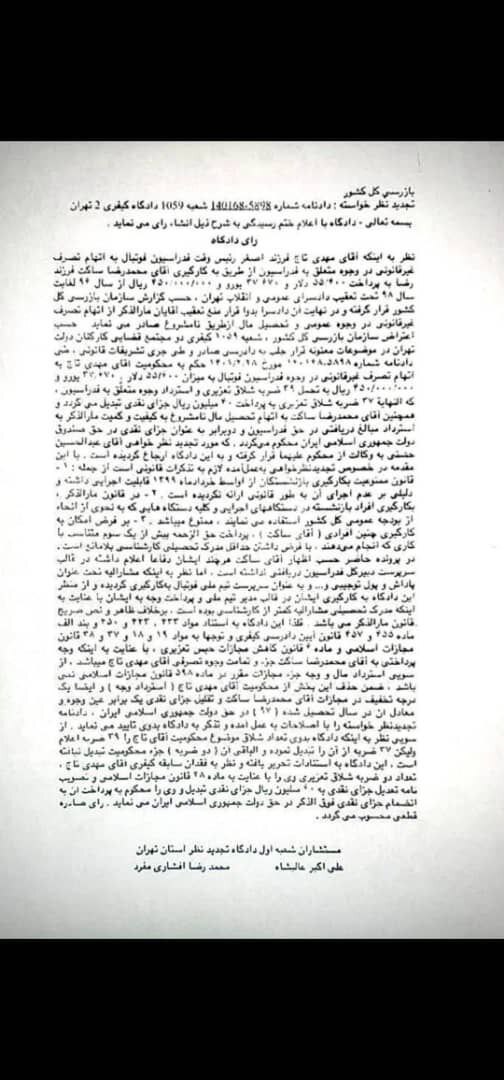 بازرسی کل کشور
تجدید نظر خواسته : دادنامه شماره 140168-5898 شعبه 1059 دادگاه کیفری 2 تهران
بسمه تعالی - دادگاه با اعلام ختم رسیدگی به شرح ذیل انشاء رای می نماید .
رای دادگاه
نظر به اینکه آقای مهدی تاج فرزند اصغر رئیس وقت فدراسیون فوتبال به اتهام تصرف
غیرقانونی در وجوه متعلق به فدراسیون از طریق به کارگیری آقای محمدرضا ساکت فرزند
رضا به پرداخت ۵۵/۴۰۰ دلار و ۳۷۶۷۰ یورو و ۴۵۰/۰۰۰/۰۰۰ ریال از سال ۹۶ لغایت
سال ۹۸ تحت تعقیب دادسرای عمومی و انقلاب تهران ، حسب گزارش سازمان بازرسی کل
کشور قرار گرفته و در نهایت آن دادسرا بدوا قرار منع تعقیب آقایان مارالذکر از اتهام تصرف
غیرقانونی در وجوه عمومی و تحصیل مال ازطریق نامشروع صادر می نماید حسب
اعتراض سازمان بازرسی کل کشور ، شعبه ۱۰۵۹ کیفری دو مجتمع قضایی کارکنان دولت
تهران در موضوعات معنونه قرار جلب به دادرسی صادر و طی جری تشریفات قانونی ، طی
دادنامه شماره مورخ ۱۴۰۱/۲/۲۸ حکم به محکومیت آقای مهدی تاج به
اتهام تصرف غیرقانونی در وجوه فدراسیون فوتبال به میزان ۵۵/۴۰۰ دلار ، ۳۷/۶۷۰ یورو و
ریال به تحمل ۳۹ ضربه شلاق تعزیری و استرداد وجوه متعلق به فدراسیون ،
که النهایة ۳۷ ضربه شلاق تعزیری به پرداخت میلیون ریال جزای نقدی تبدیل می گردد و
همچنین آقای محمدرضا ساکت به اتهام تحصیل مال نامشروع به کیفیت و کمیت مارالذکر به
استرداد مبالغ دریافتی در حق فدراسیون و دوبرابر به عنوان جزای نقدی در حق صندوق
دولت جمهوری اسلامی ایران محکوم می‌گردد . که مورد تجدید نظر خواهی آقای عبدالحسین
به وکالت از محکوم علیهما قرار گرفته و به این دادگاه ارجاع گردیده است . با این
مقدمه در خصوص تجدیدنظرخواهی به‌عمل‌آمده لازم به تذکرات قانونی است از جمله : ۱-
قانون ممنوعیت بکارگیری بازنشستگان از اواسط خردادماه ۱۳۹۹ قابلیت اجرایی داشته و
دلیلی بر عدم اجرای آن به طور قانونی ارائه نگردیده است . ۲- در قانون مارالذکر ،
بکارگیری افراد بازنشسته در دستگاههای اجرایی و کلیه دستگاه هایی که به نحوی از انحاء
از بودجه عمومی کل کشور استفاده می نمایند ، ممنوع میباشد . ۳- بر فرض امکان به
کارگیری چنین افرادی ( آقای ساکت ) ، پرداخت حق الزحمه بیش از یک سوم متناسب با
کاری که انجام می‌دهند ، با فرض داشتن حداقل مدرک تحصیلی کارشناسی بلامانع است .
در پرونده حاضر حسب اظهار آقای ساکت هرچند ایشان دفاعا اعلام داشته در قالب
سرپرست دبیرکل فدراسیون دریافتی نداشته است . اما نظر به اینکه مشارالیه تحت عنوان
پاداش و پول توجیبی و... و به عنوان سرپرست تیم ملی فوتبال به‌کارگیری گردیده و از منظر
این دادگاه به کارگیری ایشان در قالب مدیر تیم ملی و پرداخت وجه به ایشان با عنایت به
اینکه مدرک تحصیلی مشارالیه کمتر از کارشناسی بوده است ، برخلاف ظاهر و نص صریح
قانون مارالذکر می باشد . فلذا این دادگاه به استناد مواد ۴۳۳ ، ۴۴۳ و ۴۵۰ و بند الف
ماده ۴۵۵ و ۴۵۷ قانون آیین دادرسی کیفری و توجها به مواد ۱۹ و ۱۸ و ۳۷ و ۳۸ قانون
مجازات اسلامی و ماده ۶ قانون کاهش مجازات حبس تعزیری ، با عنایت به اینکه وجه
پرداختی به آقای محمدرضا ساکت جزء و تمامت وجوه تصرفی آقای مهدی تاج میباشد . از
سویی استرداد مال و وجه جزء مجازات مقرر در ماده ۵۹۸ قانون مجازات اسلامی نمی
باشد ، ضمن حذف این بخش از محکومیت آقای مهدی تاج ( استرداد وجه ) و ایضا یک
درجه تخفیف در مجازات آقای محمدرضا ساکت و تقلیل جزای نقدی یک برابر عین وجوه و
معادل آن در سال تحصیل شده ( ۹۷ ) در حق دولت جمهوری اسلامی ایران ، دادنامه
تجدیدنظر خواسته را با اصلاحات به عمل آمده و تذکر به دادگاه بدوی تایید می نماید . از
سویی نظر به اینکه دادگاه بدوی تعداد شلاق موضوع محکومیت آقای تاج را ۳۹ ضربه اعلام
ولیکن ۳۷ ضربه از آن را تبدیل نموده و الباقی آن ( دو ضربه ) جزء محکومیت تبدیل نیافته
است . این دادگاه به استنادات تحریر یافته و نظر به فقدان سابقه کیفری آقای مهدی تاج ،
تعداد دو ضربه شلاق تعزیری وی را با عنایت به ماده ۲۸ قانون مجازات اسلامی و تصویب
نامه تعدیل جزای نقدی به میلیون ریال جزای نقدی تبدیل و وی را محکوم به پرداخت آن به
انضمام جزای نقدی فوق الذکر در حق دولت جمهوری اسلامی ایران می نماید . رای صادره
قطعی محسوب می گردد .
مستشاران شعبه اول دادگاه تجدید نظر استان تهران
علی اکبر عالیشاه محمد رضا افشاری مفرد